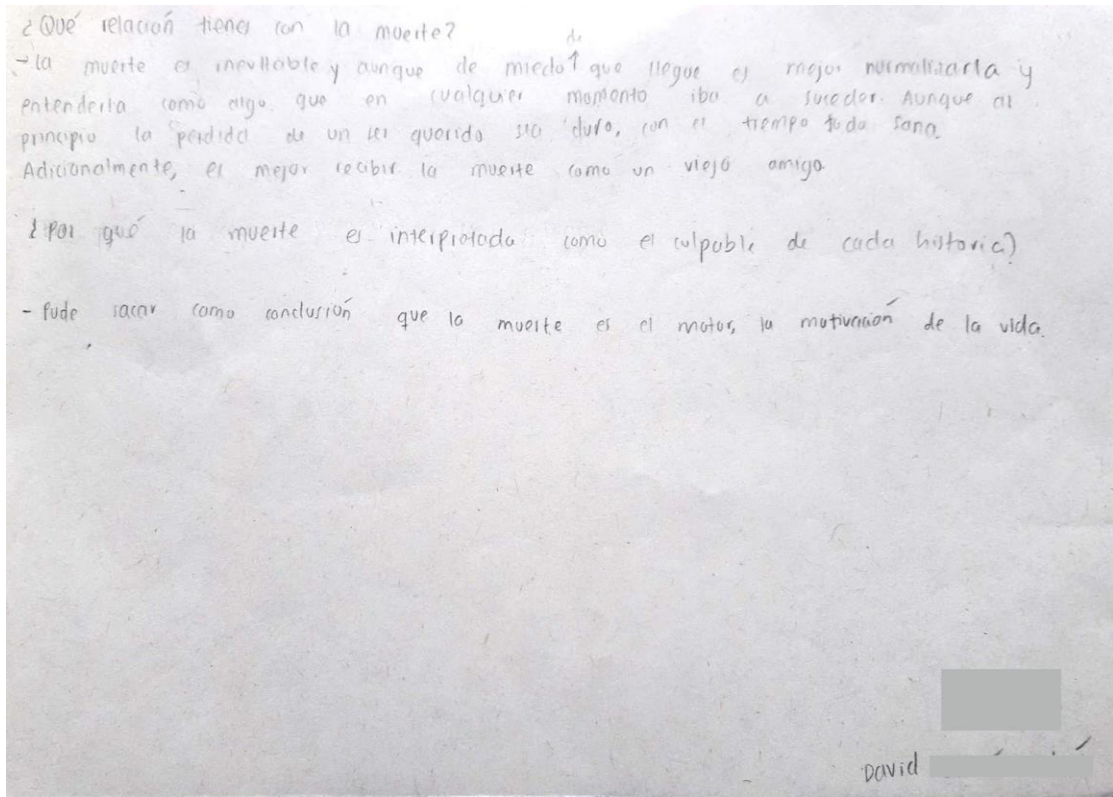 ¿Qué relación tienes con la muerte?
- La muerte es inevitable y aunque de miedo de que llegue es mejor normalizarla y
entenderla como algo que en cualquier momento iba a suceder. Aunque al
principio la perdida de un ser querido sea duro, con el tiempo todo sana.
Adicionalmente, es mejor recibir la muerte como un viejo amigo.
¿Por qué la muerte es interpretada como el culpable de cada historia?
- Pude sacar como conclusión que la muerte es el motor, la motivación de la vida.
David